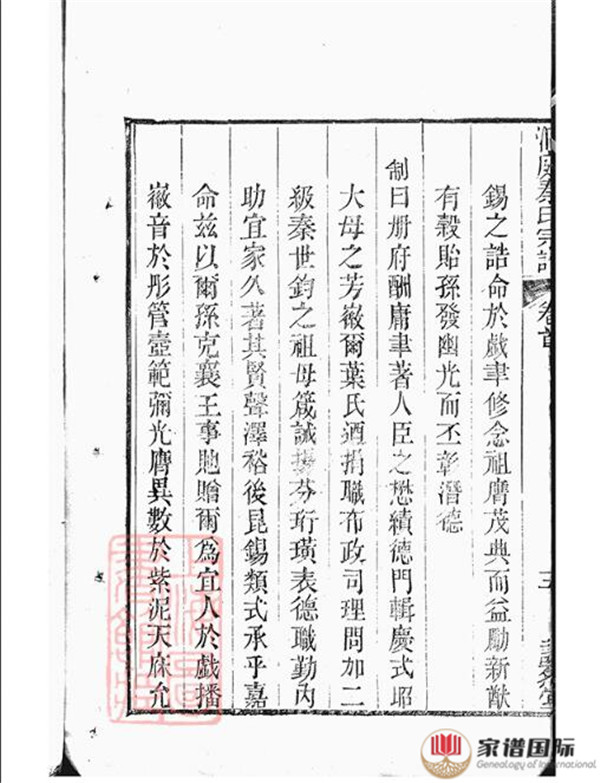 洞庭秦氏宗譜
卷首
三
錫之誥命於戲聿修念祖膺茂典而益勵新猷
有穀貽孫發幽光而丕彰潛德
制曰冊府酬庸聿著人臣之懋績德門輯慶式昭
大母之芳徽爾葉氏迺捐職布政司理問加二
級秦世鈞之祖母箴誡揚芬珩璜表德職勤內
助宜家久著其賢聲澤裕後昆錫類式承乎嘉
命茲以爾孫克襄王事貤贈爾為宜人於戲播
徽音於彤管壼範彌光膺異數於紫泥天庥允
家谱国际
Genealogy of International